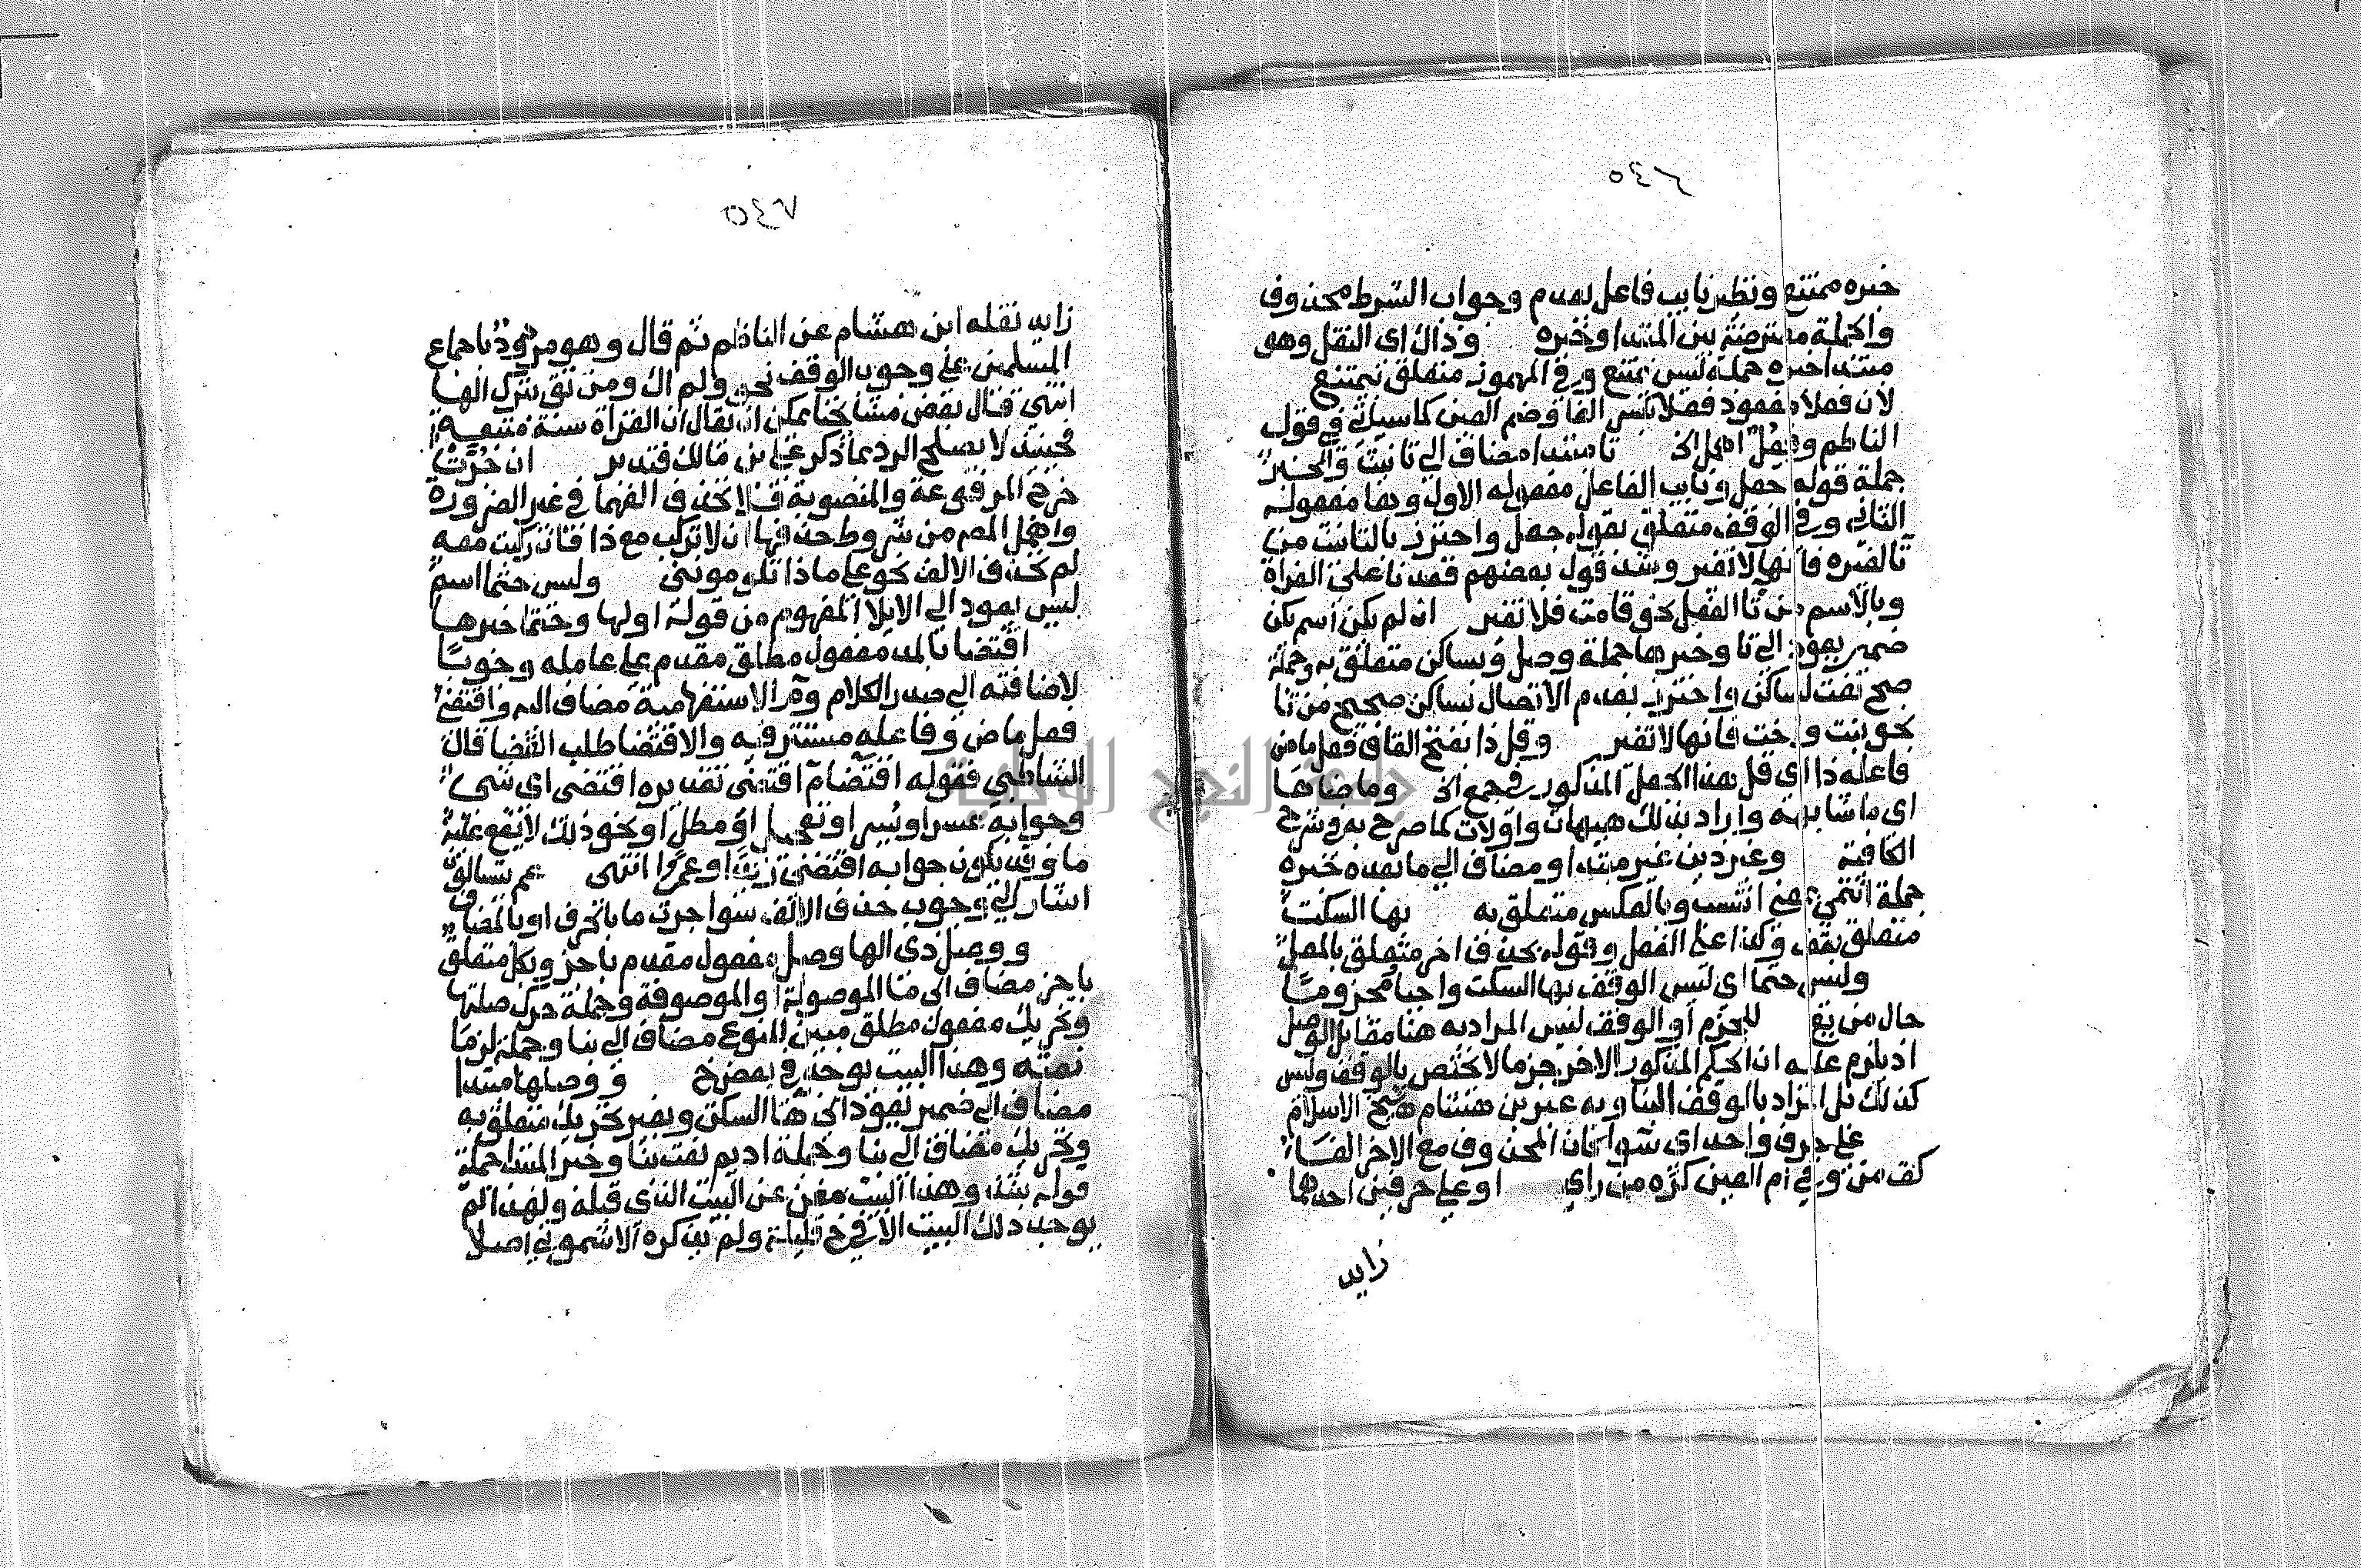 ٥٤٦
خبره ممتنع ونظير نايب فاعل يعدم وجواب الشرط محذوف
والجملة معترضة بين المبتدا وخبره وذاك اى النقل وهو
مبتدا خبره جملة ليس يمتنع وفي المهموز متعلق بيمتنع
لان فعلا مفقود فعلا بكسر الفا وضم العين كما سياتي في قول
الناظم وفعل اهمل الخ تا مبتدا مضاف الي تانيث والخبر
جملة قوله جعل ونايب الفاعل مفعوله الاول وها مفعوله
الثاني وفي الوقف متعلق بقوله جعل واحترز بالتانيث من
تا لغيره فانها لا تغير وشذ قول بعضهم قعدنا على الفراة
وبالاسم من تا الفعل نحو قامت فلا تغير ان لم يكن اسم يكن
ضمير يعود الي تا وخبرها جملة وصل وبساكن متعلق به وجملة
صح نعت لساكن واحترز بعدم الاتصال بساكن صحيح من تا
نحو بنت واخت فانها لا تغير وقل ذا بفتح القاف فعل ماض
فاعله ذا اى قل هذا الجعل المذكور في جمع الخ وما ضاها
اى ما شابهه واراد بذلك هيهات واولات كما صرح به في شرح
الكافية وغير ذين غير مبتدا ومضاف الي ما بعده خبره
جملة انتمي بمعني انتسب وبالعكس متعلق به بها السكت
متعلق بقف وكذا على الفعل وقوله بحذف اخر متعلق بالمعل
وليس حتما اي ليس الوقف بها السكت واجبا مجزوما
حال من يع للجزم أو الوقف ليس المراد به هنا مقابل الوصل
اذ يلزم عليه ان الحكم المذكور الاخر جزما لا يختص بالوقف وليس
كذلك بل المراد بالوقف البنا وبه عبر بن هشام شيخ الاسلام
على حرف واحد اى سوا كان المحذوف مع الاخر الفا
كقه من وفي ام العين كره من راي او على حرفين احدهما
زايد
٥٤٧
زايد نقله ابن هشام عن الناظم ثم قال وهو مردود باجماع
المسلمين على وجوب الوقف نحو ولم اك ومن تق بترك الها
انتهي قال بعض مشايخنا يمكن ان يقال ان القراة سنة متبعة
فحينئذ لا يصلح الرد بما ذكر على بن مالك فتدبر ان جرت
خرج المرفوعة والمنصوبة فلا تحذف الفهما في غير الضرورة
واهمل المص من شروط حذفها ان لا تركب مع ذا فان ركبت معه
لم تحذف الالف نحو على ما ذا تلوموني وليس حتما اسم
ليس يعود الي الايلا المفهوم من قوله اولها وحتما خبرها
اقتضا بالمد مفعول مطلق مقدم على عامله وجوبا
لاضافته الي صدر الكلام وم الاستفهامية مضاف اليه واقتضي
فعل ماض وفاعله مستتر فيه والاقتضا طلب القضا قال
الشاطبي فقوله اقتضام اقتضى تقديره اقتضى اى شى
وجوابه عسرا ويسرا وتعجيل او مطل او نحو ذلك لا يقع عليه
ما وقد يكون جوابه اقتضى زيدا وعمرا انتهى عم تسالون
اشار الي وجوب حذف الالف سوا جرت ما بالحرف او بالمضاف
ووصل ذي الها وصل مفعول مقدم باجز وبكل متعلق
باجز مضاف الى ما الموصولة او الموصوفة وجملة حرك صلتها
وتحريك مفعول مطلق مبين للنوع مضاف الي بنا وجملة لزما
نعته وهذا البيت يوجد في بعض خ ووصلها مبتدا
مضاف الي ضمير يعود الى ها السكت وبغير تحريك متعلق به
وتحريك مضاف الي بنا وجملة اديم نعت بنا وخبر المبتدا جملة
قوله شذ وهذا البيت مغن عن البيت الذى قبله ولهذا لم
يوجد ذلك البيت الا في خ قليلة ولم يذكره الاشموني اصلا
جامعة النجاح الوطنية